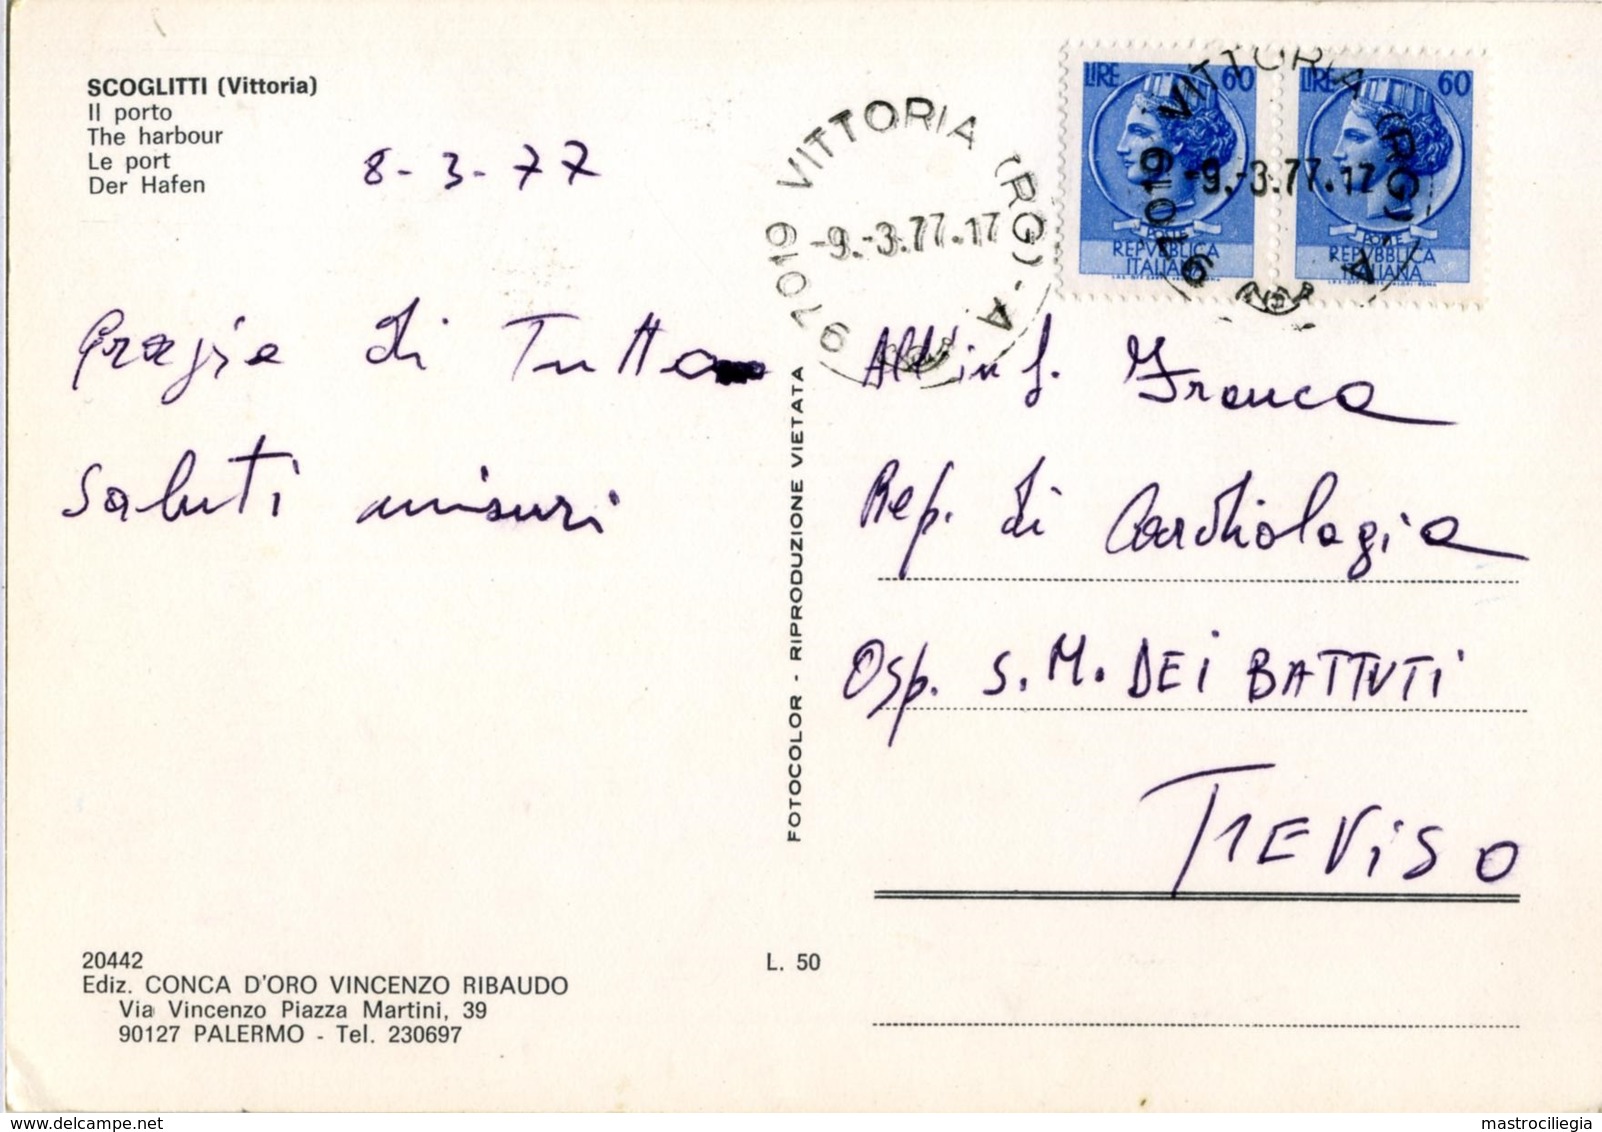 SCOGLITTI (Vittoria)
Il porto
The harbour
Le port
Der Hafen
8-3-77
Grazie di Tutto
saluti
97019 VITTORIA (RG) - A
-9.-3.77.17
LIRE 60
POSTE
REPVBBLICA
ITALIANA
LIRE 60
POSTE
REPVBBLICA
ITALIANA
97019 VITTORIA (RG) - A
-9.-3.77.17
All'inf. Franca
Rep. di Cardiologia
Osp. S. M. DEI BATTUTI
TREVISO
FOTOCOLOR - RIPRODUZIONE VIETATA
20442
Ediz. CONCA D'ORO VINCENZO RIBAUDO
Via Vincenzo Piazza Martini, 39
90127 PALERMO - Tel. 230697
L. 50
mastrociliegia